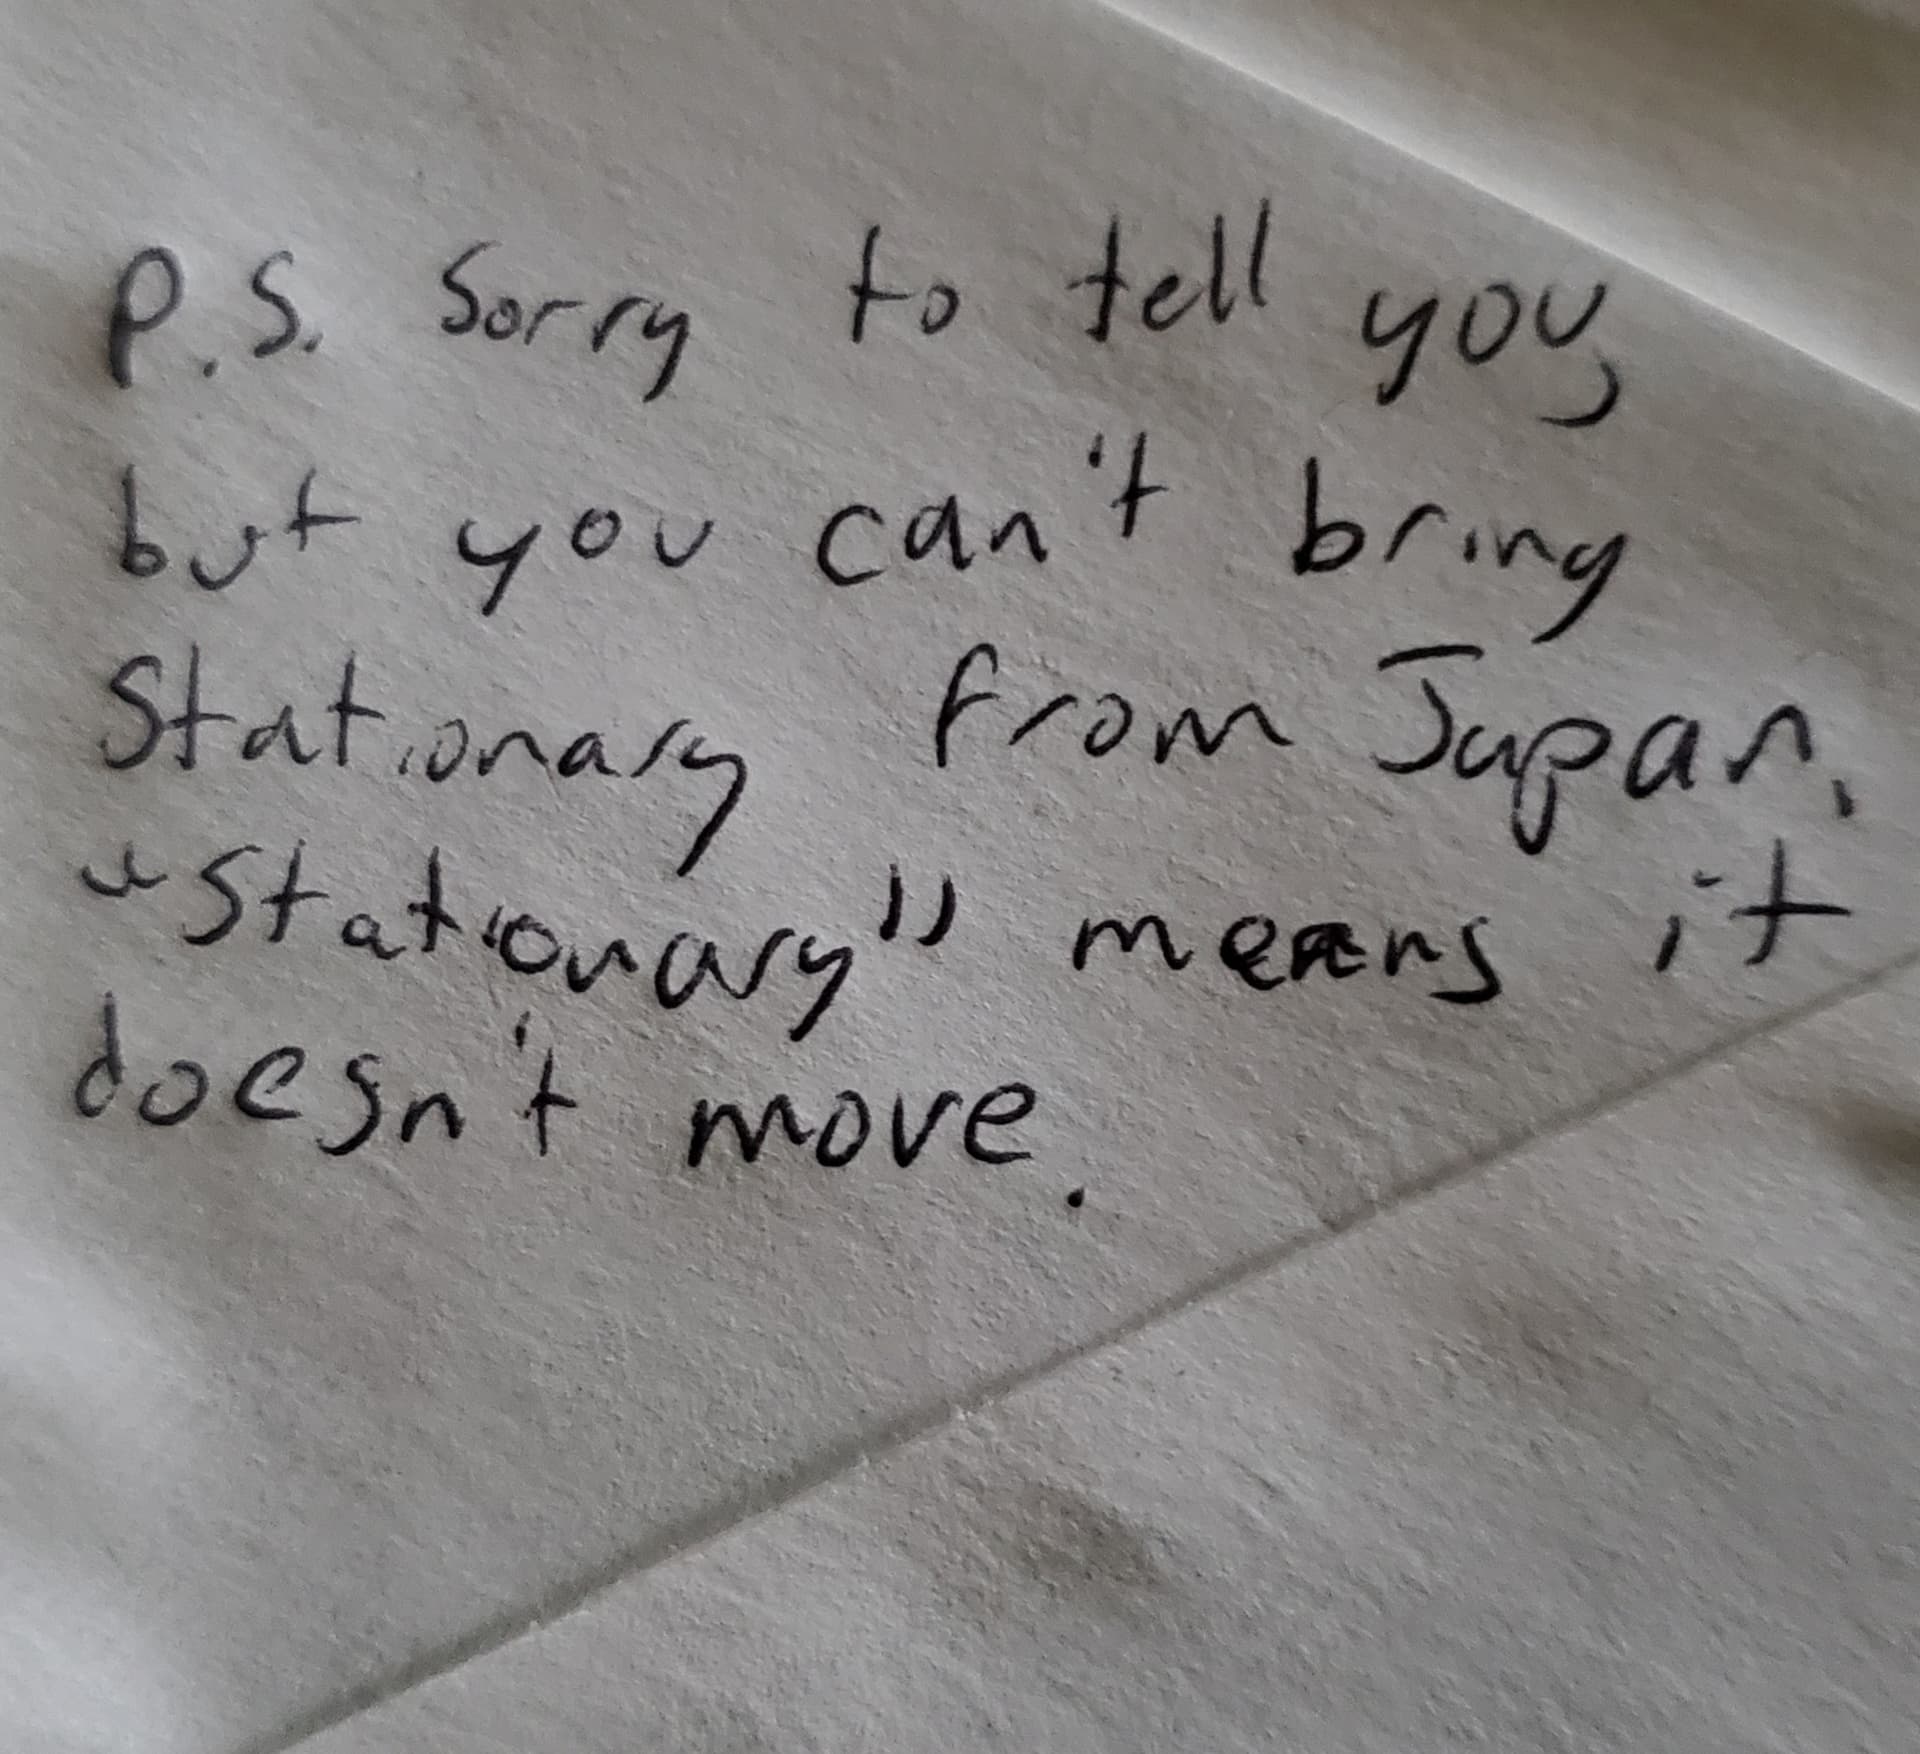 P.S. Sorry to tell you,
but you can't bring
Stationary from Japan.
"Stationary" means it
doesn't move.